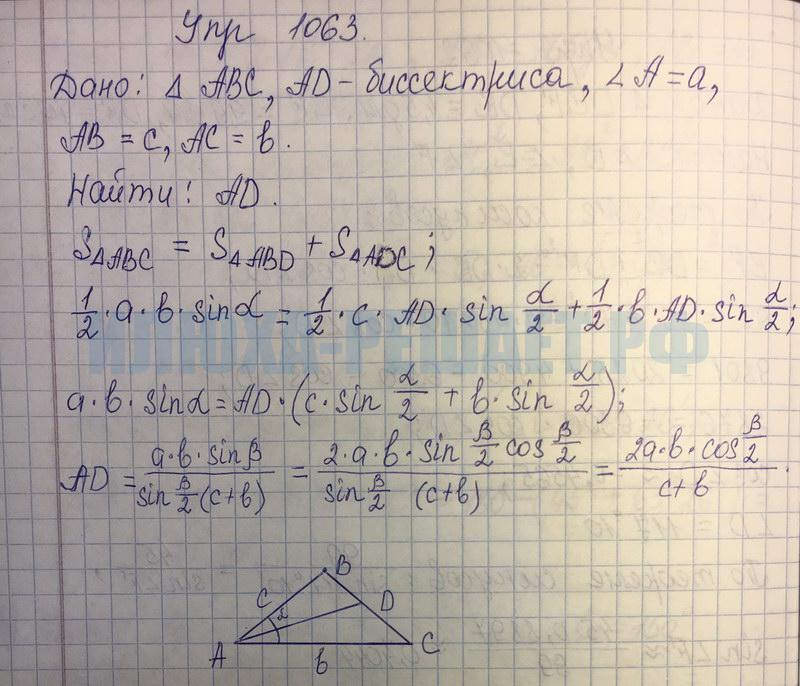 Упр 1063.
Дано: Δ ABC, AD - биссектриса, ∠A = a,
AB = c, AC = b.
Найти: AD.
SΔABC = SΔABD + SΔADC;
1/2 · a · b · sinα = 1/2 · c · AD · sin α/2 + 1/2 · b · AD · sin α/2;
ИЛЮХА-РЕШАЕТ.РФ
a · b · sinα = AD · (c · sin α/2 + b · sin α/2);
AD = a·b·sinβ / sin β/2 (c+b) = 2·a·b·sin β/2 cos β/2 / sin β/2 (c+b) = 2a·b·cos β/2 / c+b.
B
C α D
A b C